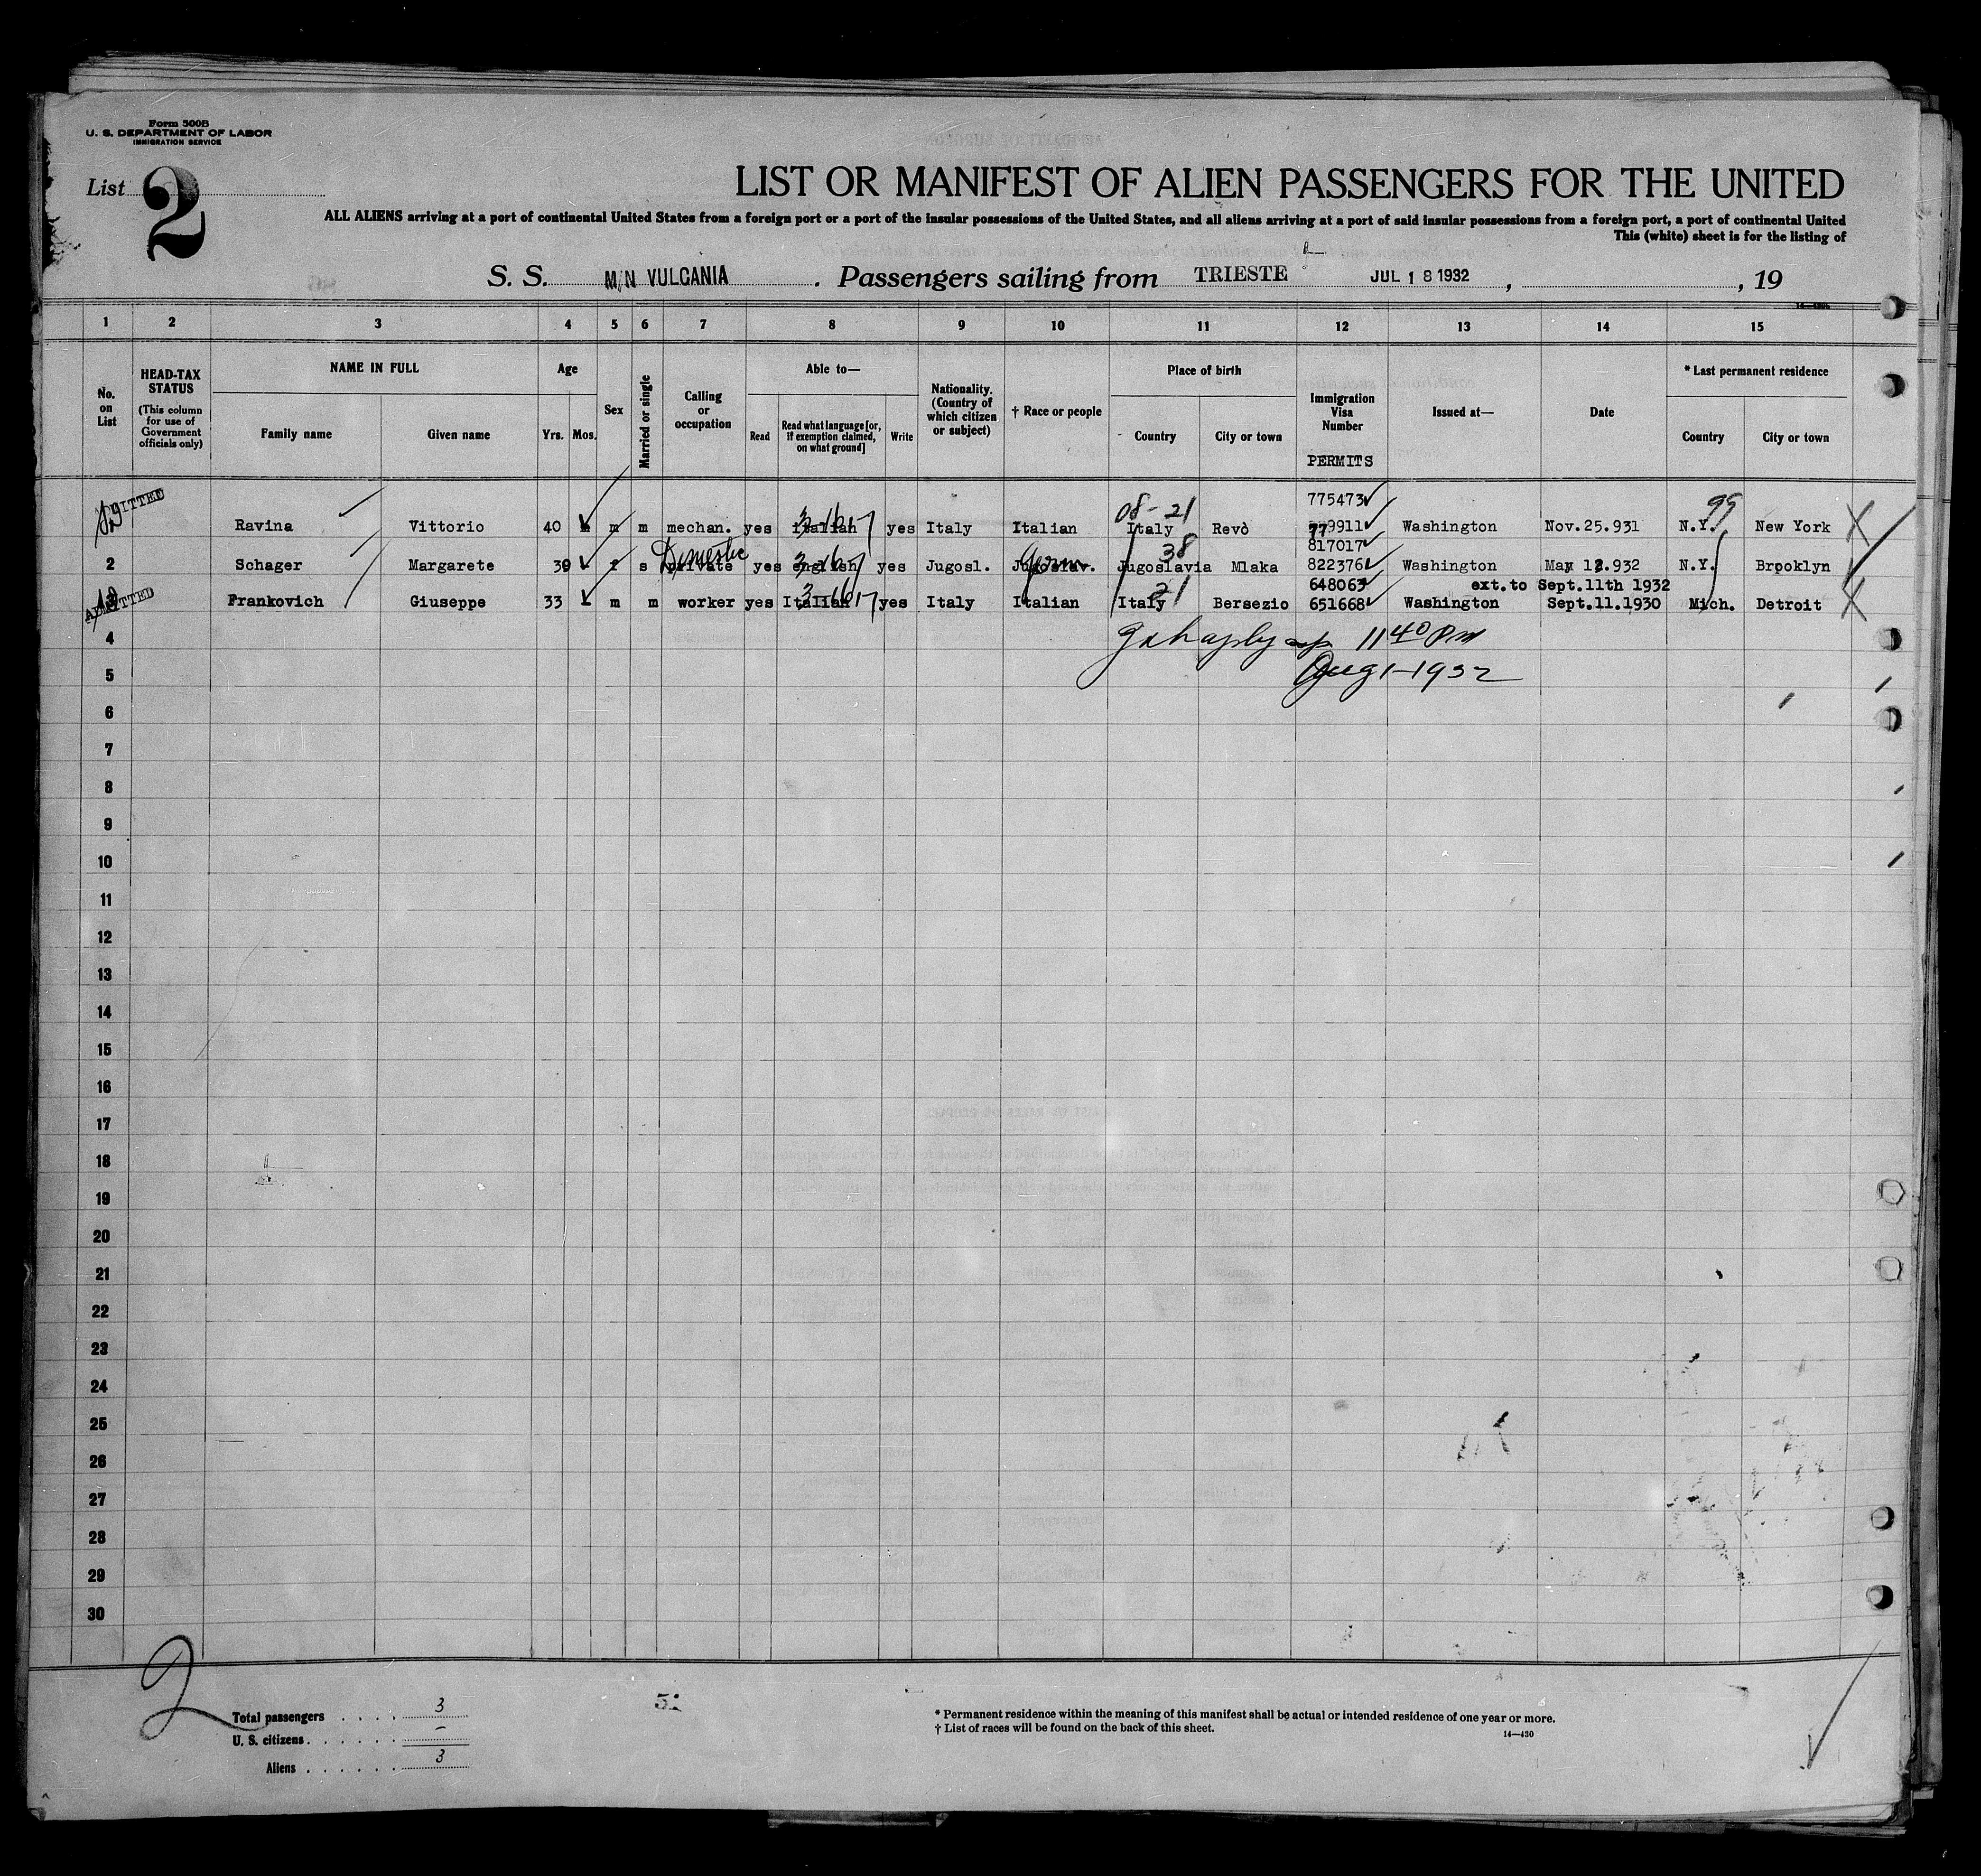 Form 500B
U. S. DEPARTMENT OF LABOR
IMMIGRATION SERVICE
List 2
LIST OR MANIFEST OF ALIEN PASSENGERS FOR THE UNITED
ALL ALIENS arriving at a port of continental United States from a foreign port or a port of the insular possessions of the United States, and all aliens arriving at a port of said insular possessions from a foreign port, a port of continental United
This (white) sheet is for the listing of
S. S. M/N VULCANIA. Passengers sailing from TRIESTE JUL 18 1932, , 19
1 2 3 4 5 6 7 8 9 10 11 12 13 14 15
No. on List
HEAD-TAX STATUS (This column for use of Government officials only)
NAME IN FULL
Family name Given name
Age
Yrs. Mos.
Sex
Married or single
Calling or occupation
Able to—
Read Read what language [or, if exemption claimed, on what ground] Write
Nationality. (Country of which citizen or subject)
† Race or people
Place of birth
Country City or town
Immigration Visa Number
PERMITS
Issued at—
Date
* Last permanent residence
Country City or town
ADMITTED 08-21 775473 99
Ravina Vittorio 40 m m mechan. yes Italian yes Italy Italian Italy Revò 779911 Washington Nov.25.931 N.Y. New York
Domestic 38 817017
2 Schager Margarete 39 f s private yes english yes Jugosl. Jugoslavia Mlaka 822376 Washington May 12.932 N.Y. Brooklyn
21 648063 ext.to Sept.11th 1932
ADMITTED Frankovich Giuseppe 33 m m worker yes Italian yes Italy Italian Italy Bersezio 651668 Washington Sept.11.1930 Mich. Detroit
4 11 40 PM
5 Aug 1-1932
6
7
8
9
10
11
12
13
14
15
16
17
18
19
20
21
22
23
24
25
26
27
28
29
30
2
Total passengers . . . . 3
U. S. citizens . . . . . . –
Aliens . . . . . . 3
* Permanent residence within the meaning of this manifest shall be actual or intended residence of one year or more.
† List of races will be found on the back of this sheet.
14—430